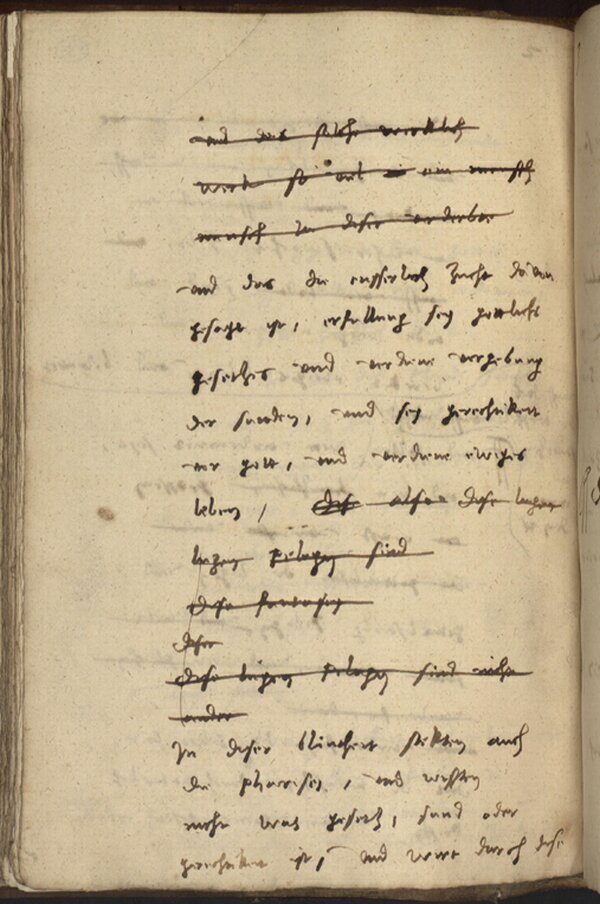 und das solche werklich
werk so viel ein mensch
mensch in diser verderbte
und das die eusserlich zucht davon
gesagt ist, erfullung sey gottlichs
gesetzes und verdiene vergebung
der sunden, und sey gerechtikeit
vor gott, und verdiene ewiges
leben, dise also dise lugen
lugen pelagij sind
dise fantasey
diser
dise lugen pelagij sind nicht
ander
In diser blintheit stekten auch
die phariseij, und wissten
nicht was gesetz, sund oder
gerechtikeit ist, und wirt durch dise